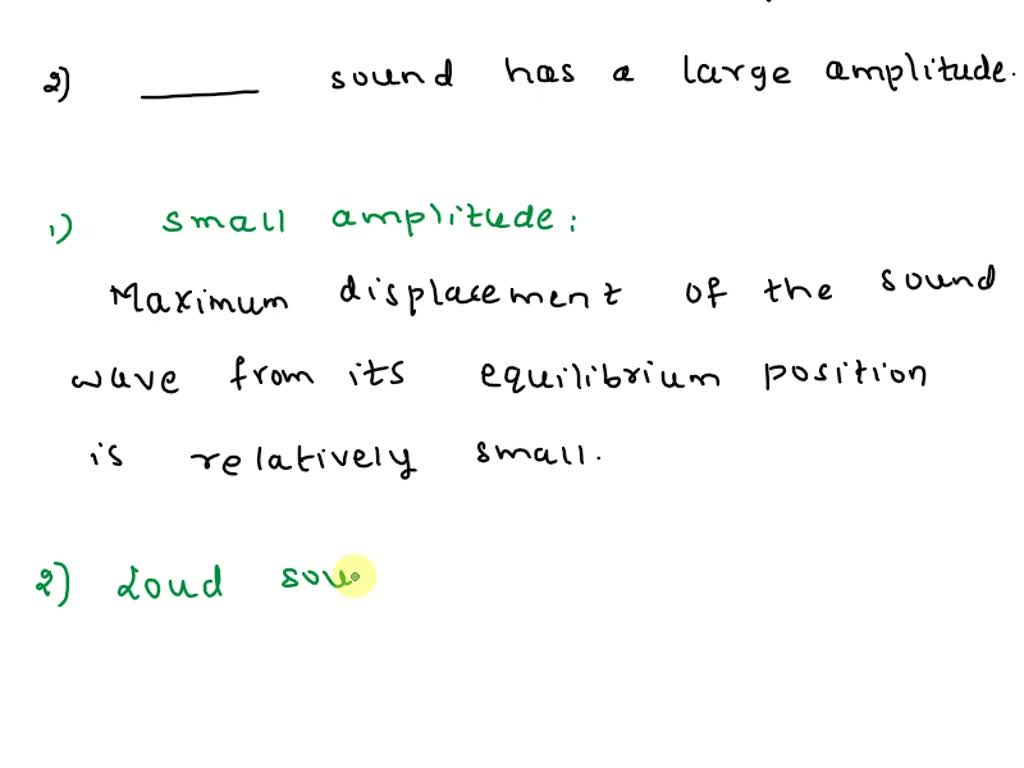 2) ______ sound has a large amplitude.
1) small amplitude:
Maximum displacement of the sound
wave from its equilibrium position
is relatively small.
2) Loud sou